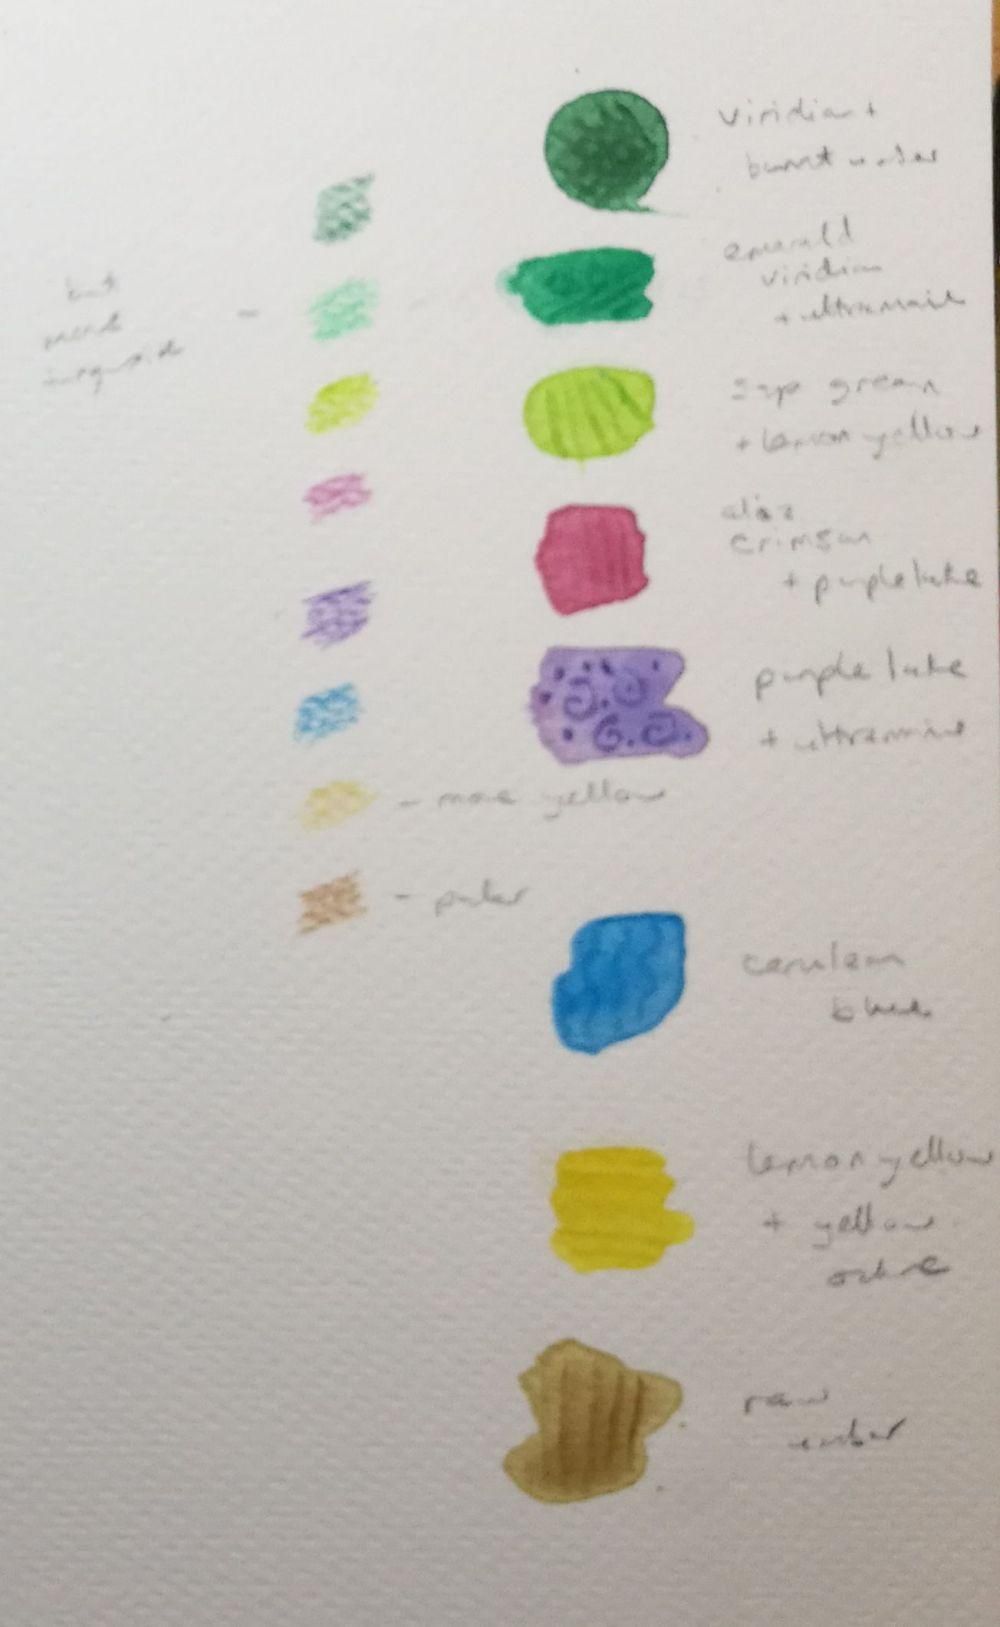 viridian +
burnt umber
emerald
viridian
+ ultramarine
but
more
turquoise -
sap green
+ lemon yellow
aliz
crimson
+ purple lake
purple lake
+ ultramarine
- more yellow
- paler
cerulean
blue
lemon yellow
+ yellow
ochre
raw
umber